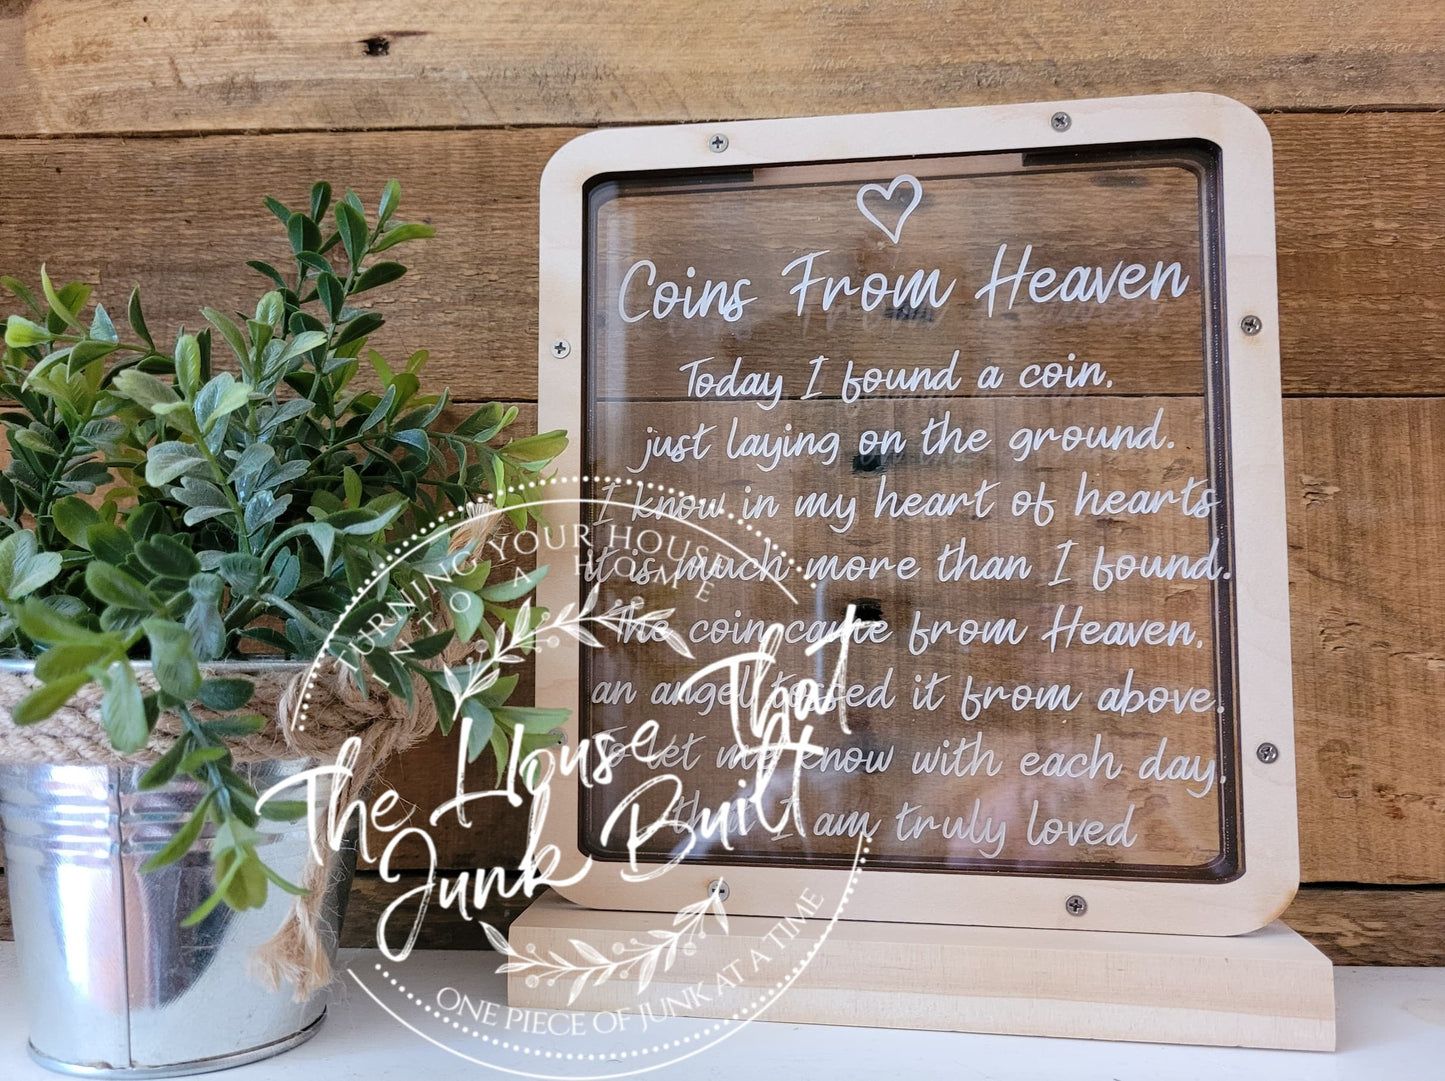 Coins From Heaven
Today I found a coin,
just laying on the ground.
I know in my heart of hearts
it is much more than I found.
The coin came from Heaven,
an angel tossed it from above,
To let me know with each day,
that I am truly loved
TURNING YOUR HOUSE
INTO A HOME
The House That
Junk Built
ONE PIECE OF JUNK AT A TIME